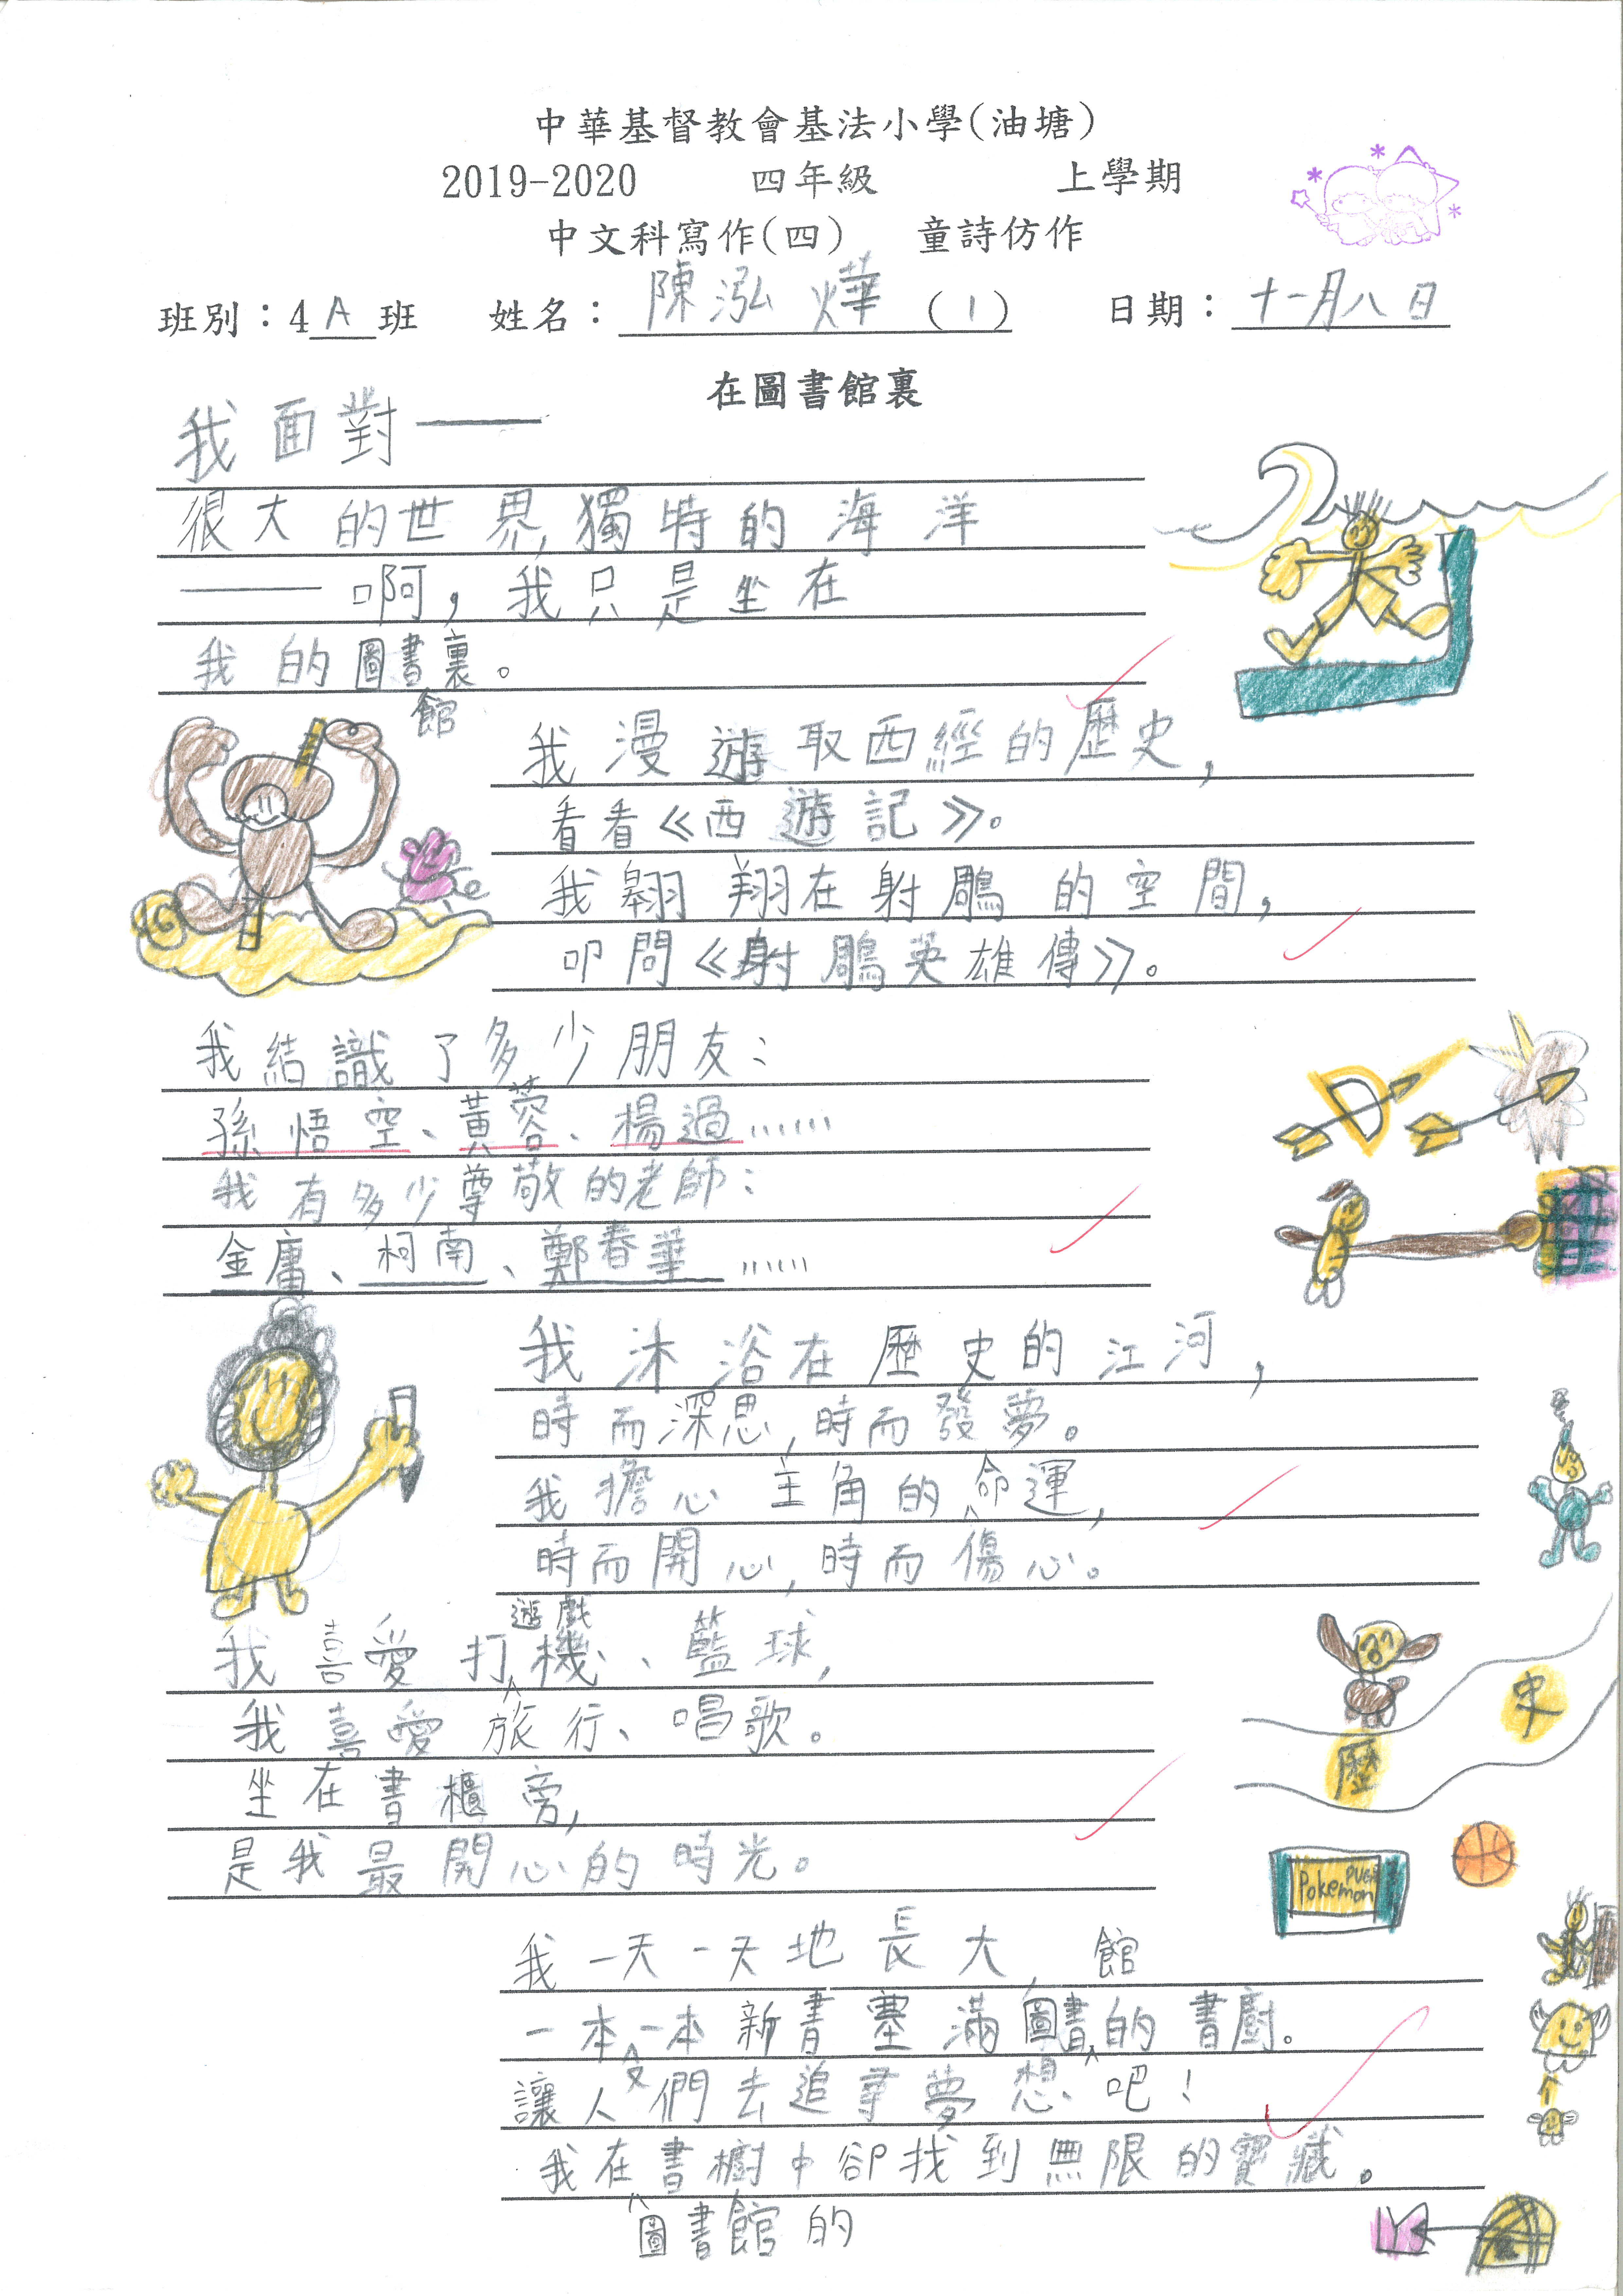 中華基督教會基法小學(油塘)
2019-2020 四年級 上學期
中文科寫作(四) 童詩仿作
班別：4A班 姓名：陳泓燁(1) 日期：十一月八日
在圖書館裏
我面對——
很大的世界,獨特的海洋
——啊，我只是坐在
我的圖書館裏。
我漫遊取西經的歷史，
看看《西遊記》。
我翱翔在射鵰的空間，
叩問《射鵰英雄傳》。
我結識了多少朋友：
孫悟空、黃蓉、楊過……
我有多少尊敬的老師：
金庸、柯南、鄭春華……
我沐浴在歷史的江河，
時而深思,時而發夢。
我擔心主角的命運,
時而開心,時而傷心。
我喜愛打遊戲機、籃球,
我喜愛旅行、唱歌。
坐在書櫃旁,
是我最開心的時光。
史
歷
Pokemon
我一天一天地長大,
一本又一本新書塞滿圖書館的書廚。
讓人們去追尋夢想吧！
我在圖書館的書櫥中卻找到無限的寶藏。